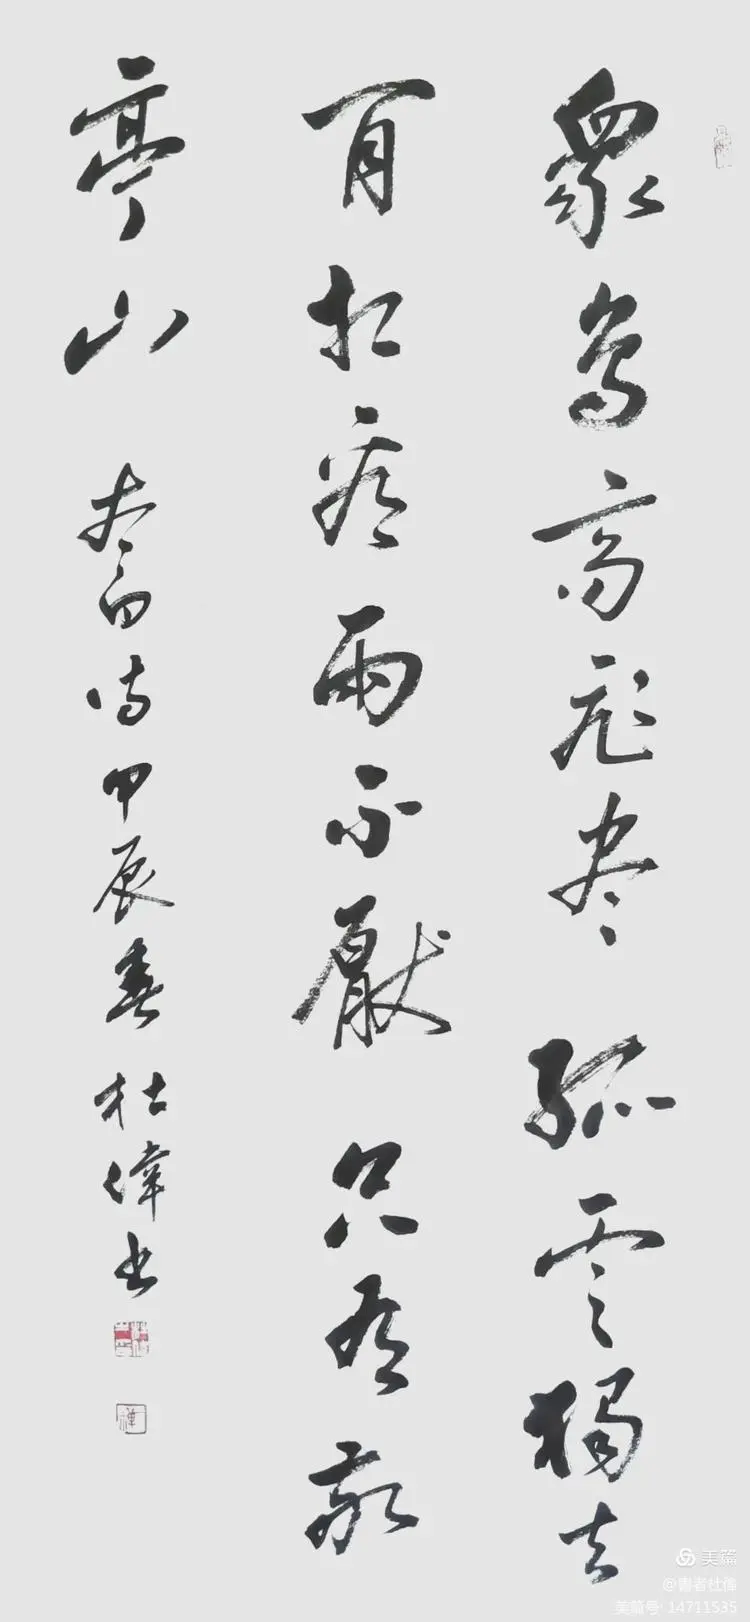 眾鳥高飛尽孤雲獨去
閒相看兩不厭只有敬
亭山
太白詩甲辰春杜偉書
美篇
美篇号: 14711535